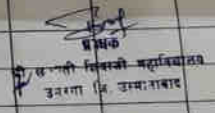 प्राचार्य
श्री छत्रपती शिवाजी महाविद्यालय
उमरगा जि. उस्मानाबाद